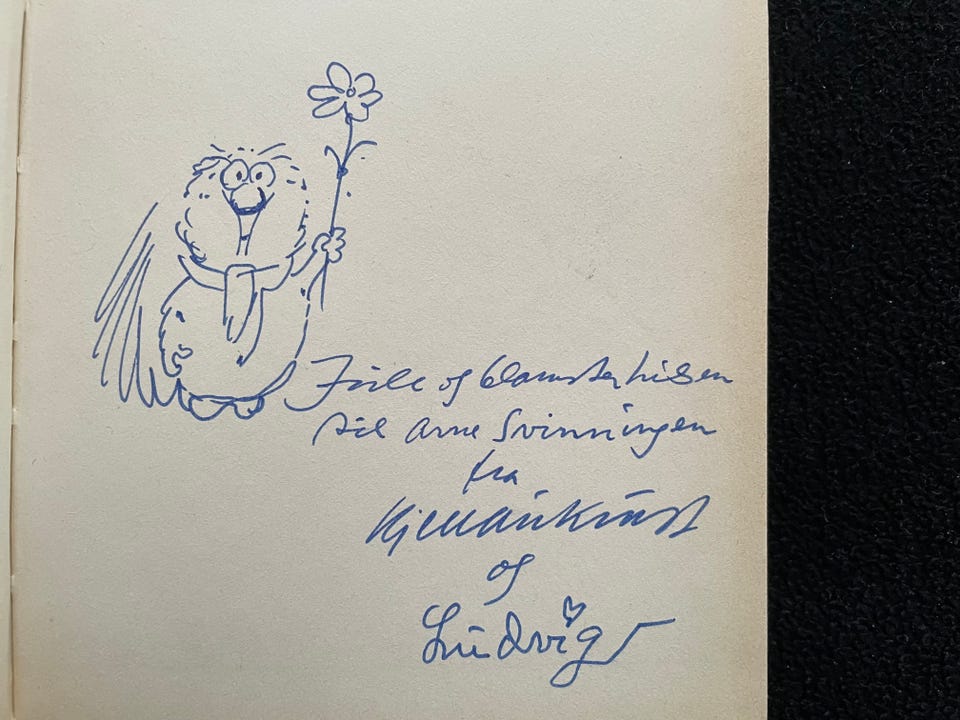 Fille og blomsterhilsen
til Arne Svinningen
fra
Kjell Aukrust
og
Ludvig